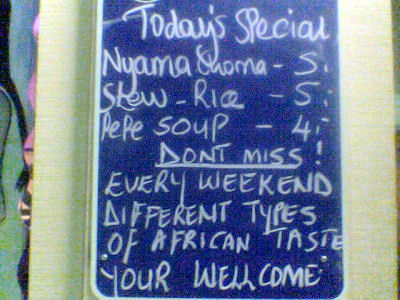 Today's Special
Nyama Choma - 5:
Stew - Rice - 5:
PePe SOUP - 4:-
DONT MISS!
EVERY WEEKEND
DIFFERENT TYPES
OF AFRICAN TASTE
YOUR WELLCOME